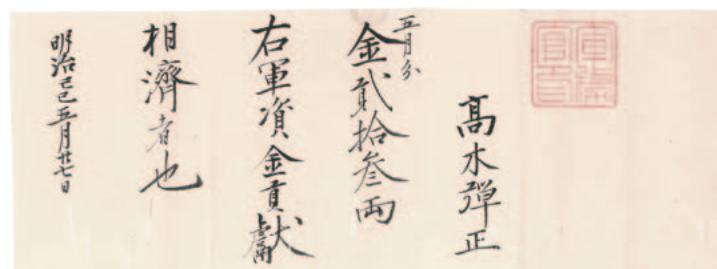 髙木弾正
五月分
金貳拾叁両
右軍資金貢獻
相濟者也
明治己巳五月廿七日